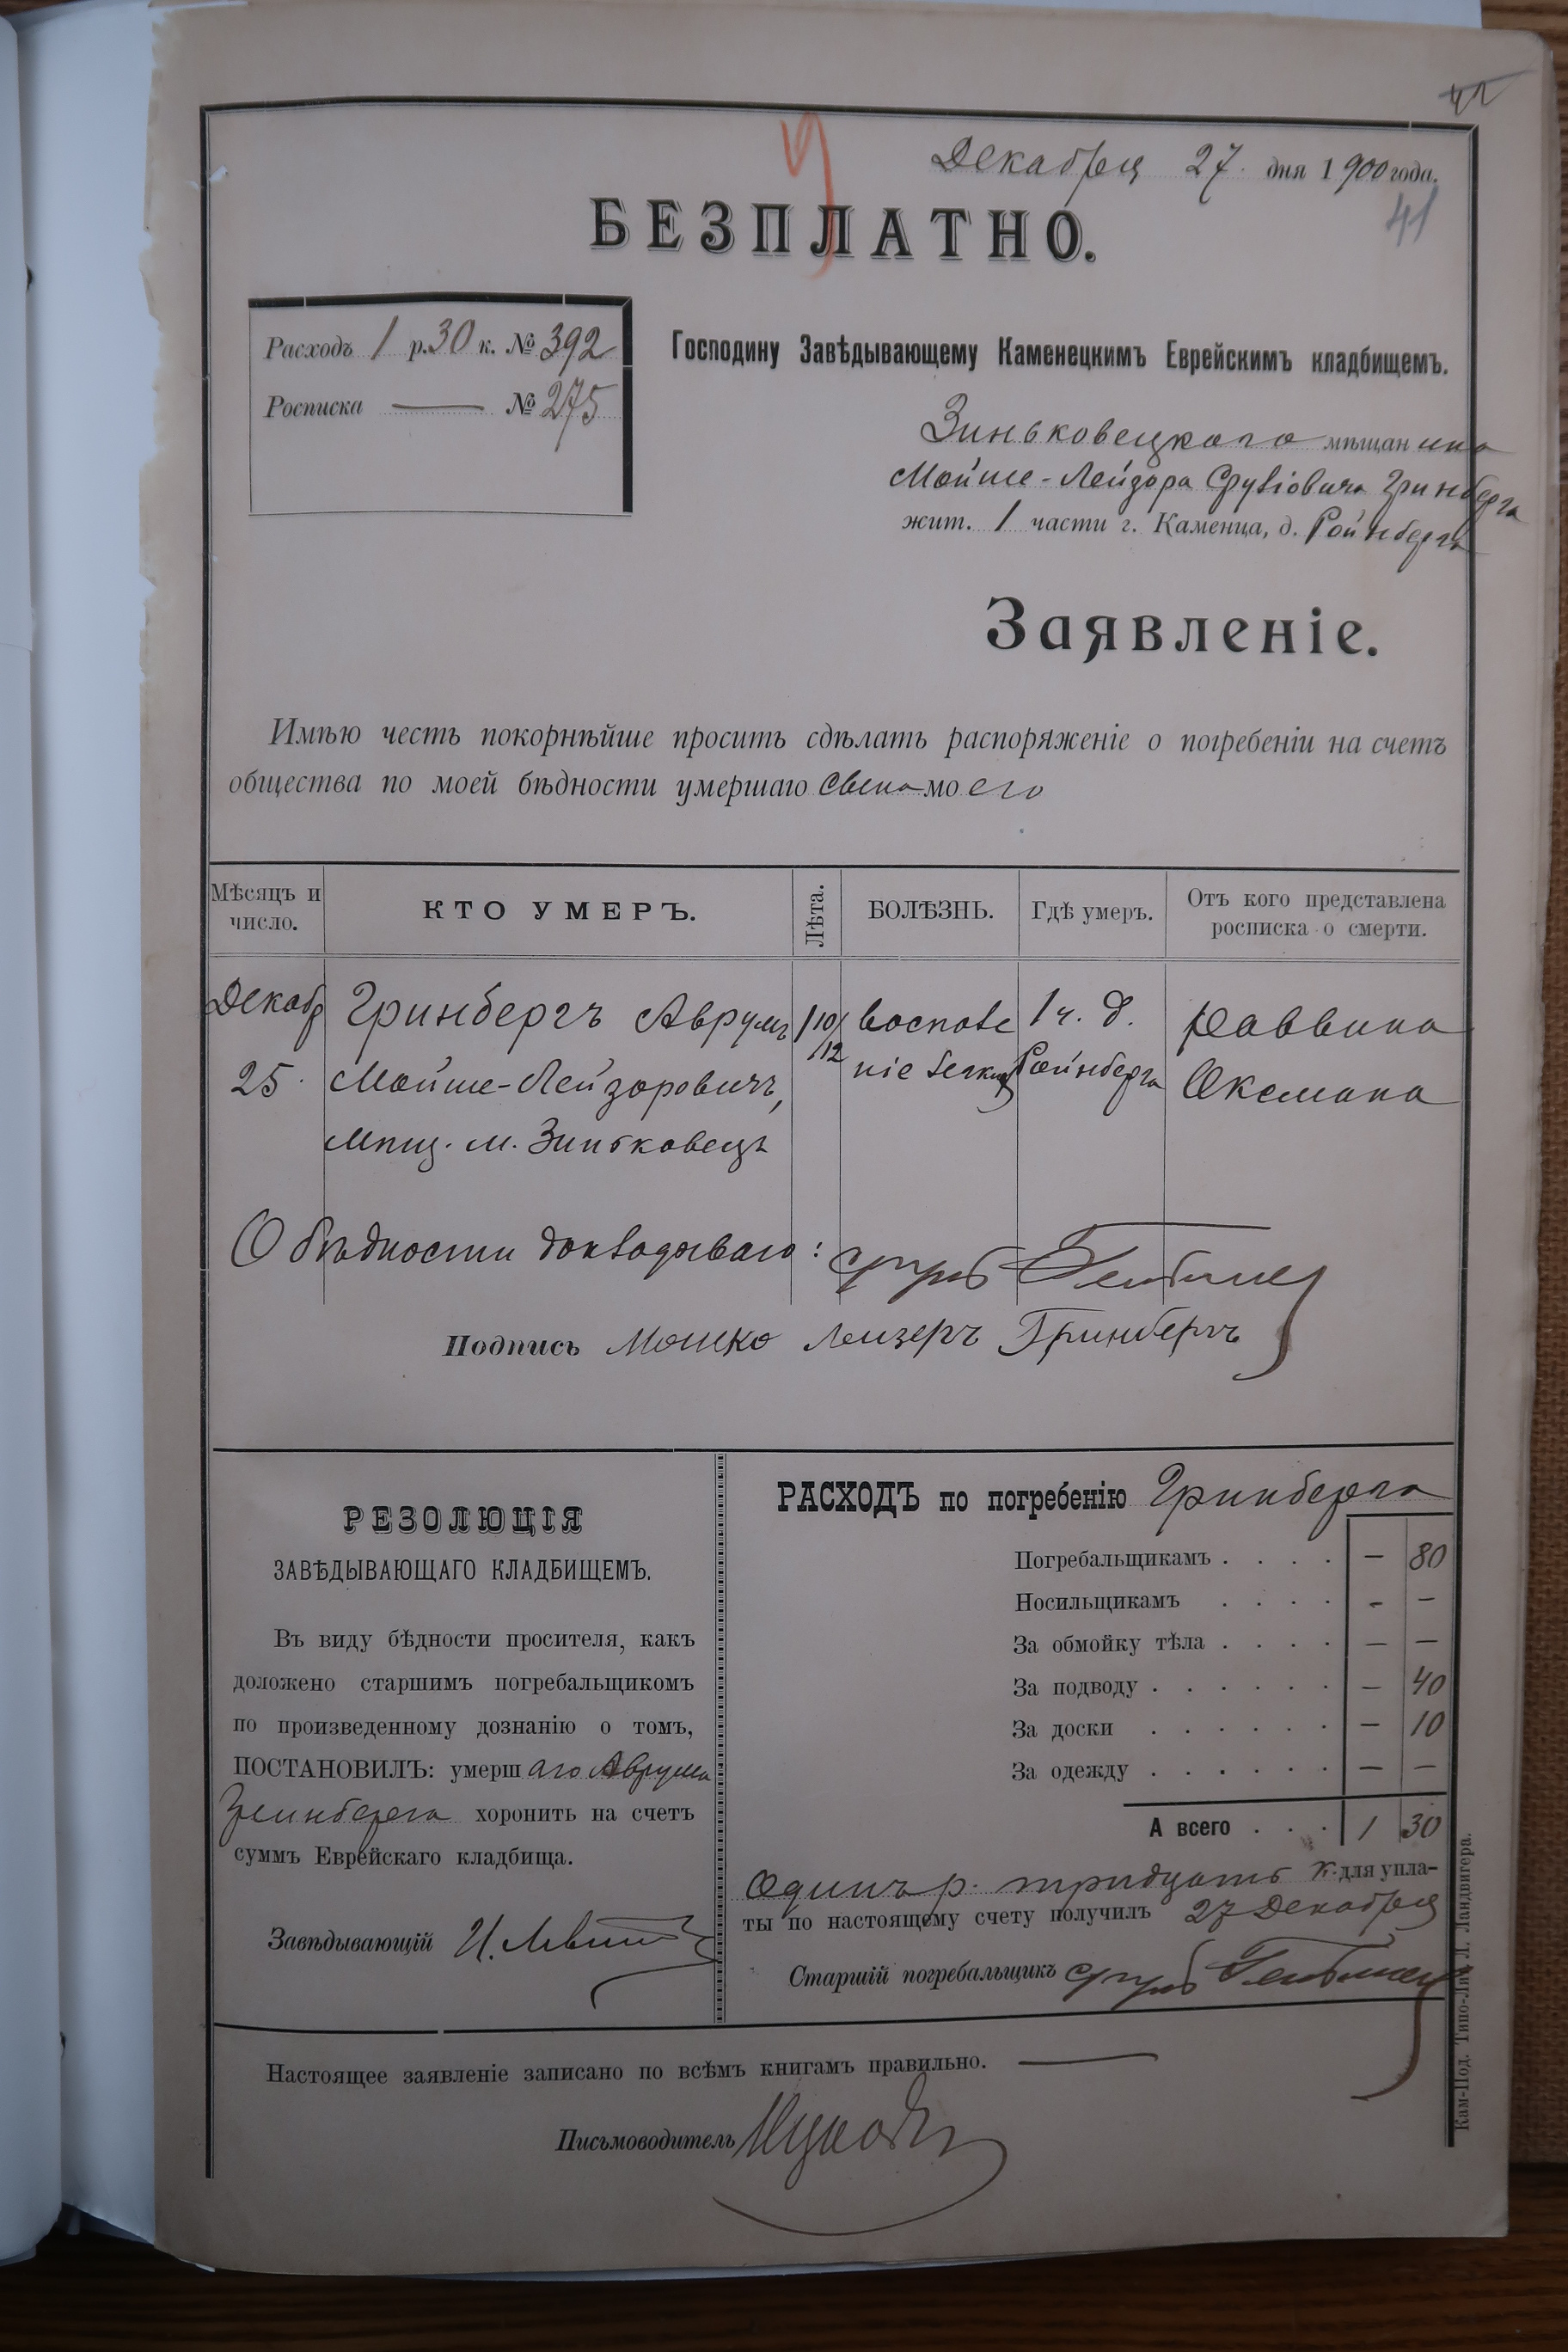 41
Декабря 27. дня 1900 года.
БЕЗПЛАТНО.
41
Расходъ 1 р. 30 к. № 392
Росписка — № 275
Господину Завѣдывающему Каменецкимъ Еврейскимъ кладбищемъ.
Зиньковецкаго мѣщанина
Мойше-Лейзора Гринберга
жит. 1 части г. Каменца, д. Ройнберга
Заявленіе.
Имѣю честь покорнѣйше просить сдѣлать распоряженіе о погребеніи на счетъ
общества по моей бѣдности умершаго сына моего
Мѣсяцъ и число.
КТО УМЕРЪ.
Лѣта.
БОЛѢЗНЬ.
Гдѣ умеръ.
Отъ кого представлена росписка о смерти.
Декабр Гринбергъ Аврумъ 1 10/12 воспале 1 ч. д. Раввина
25. Мойше-Лейзоровичъ, ніе легкихъ Ройнберга Оксмана
мѣщ. м. Зиньковецъ
О бѣдности докладываю:
Подпись Мошко Лейзеръ Гринбергъ
РЕЗОЛЮЦІЯ
ЗАВѢДЫВАЮЩАГО КЛАДБИЩЕМЪ.
Въ виду бѣдности просителя, какъ
доложено старшимъ погребальщикомъ
по произведенному дознанію о томъ,
ПОСТАНОВИЛЪ: умершаго Аврума
Гринберга хоронить на счетъ
суммъ Еврейскаго кладбища.
Завѣдывающій
РАСХОДЪ по погребенію Гринберга
Погребальщикамъ . . . . — 80
Носильщикамъ . . . . — —
За обмойку тѣла . . . . — —
За подводу . . . . . . — 40
За доски . . . . . . — 10
За одежду . . . . . . — —
А всего . . . 1 30
Одинъ р. тридцать к. для упла-
ты по настоящему счету получилъ 27 Декабря
Старшій погребальщикъ
Настоящее заявленіе записано по всѣмъ книгамъ правильно. —
Письмоводитель
Кам-Под. Типо-Лит. Л. Ландвигера.